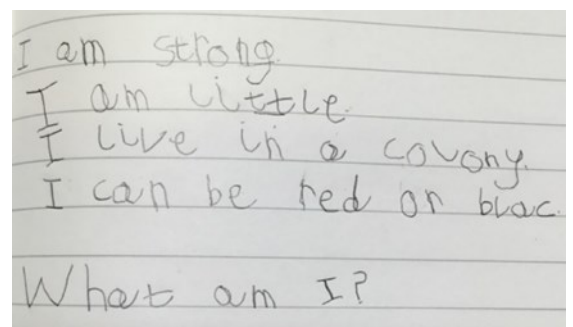 I am strong.
I am little.
I live in a colony.
I can be red or blac.
What am I?